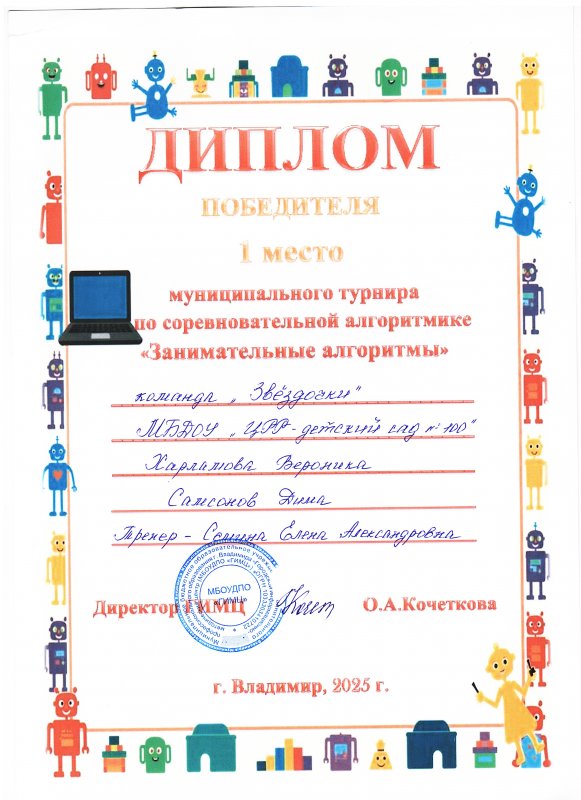 ДИПЛОМ
ПОБЕДИТЕЛЯ
1 место
муниципального турнира
по соревновательной алгоритмике
«Занимательные алгоритмы»
команда „Звёздочки"
МБДОУ „ЦРР-детский сад №100"
Харламова Вероника
Самсонов Дима
Тренер - Семина Елена Александровна
МБОУДПО
«ГИМЦ»
Директор ГИМЦ
О.А.Кочеткова
г. Владимир, 2025 г.